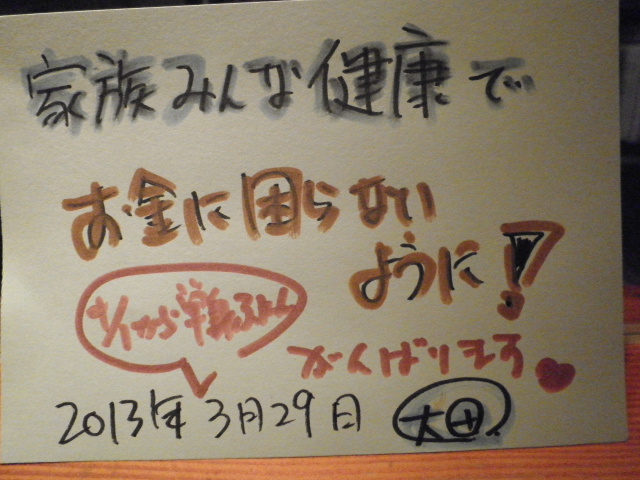 家族みんな健康で
お金に困らない
ように!
4/1から
がんばります
2013年3月29日 太田